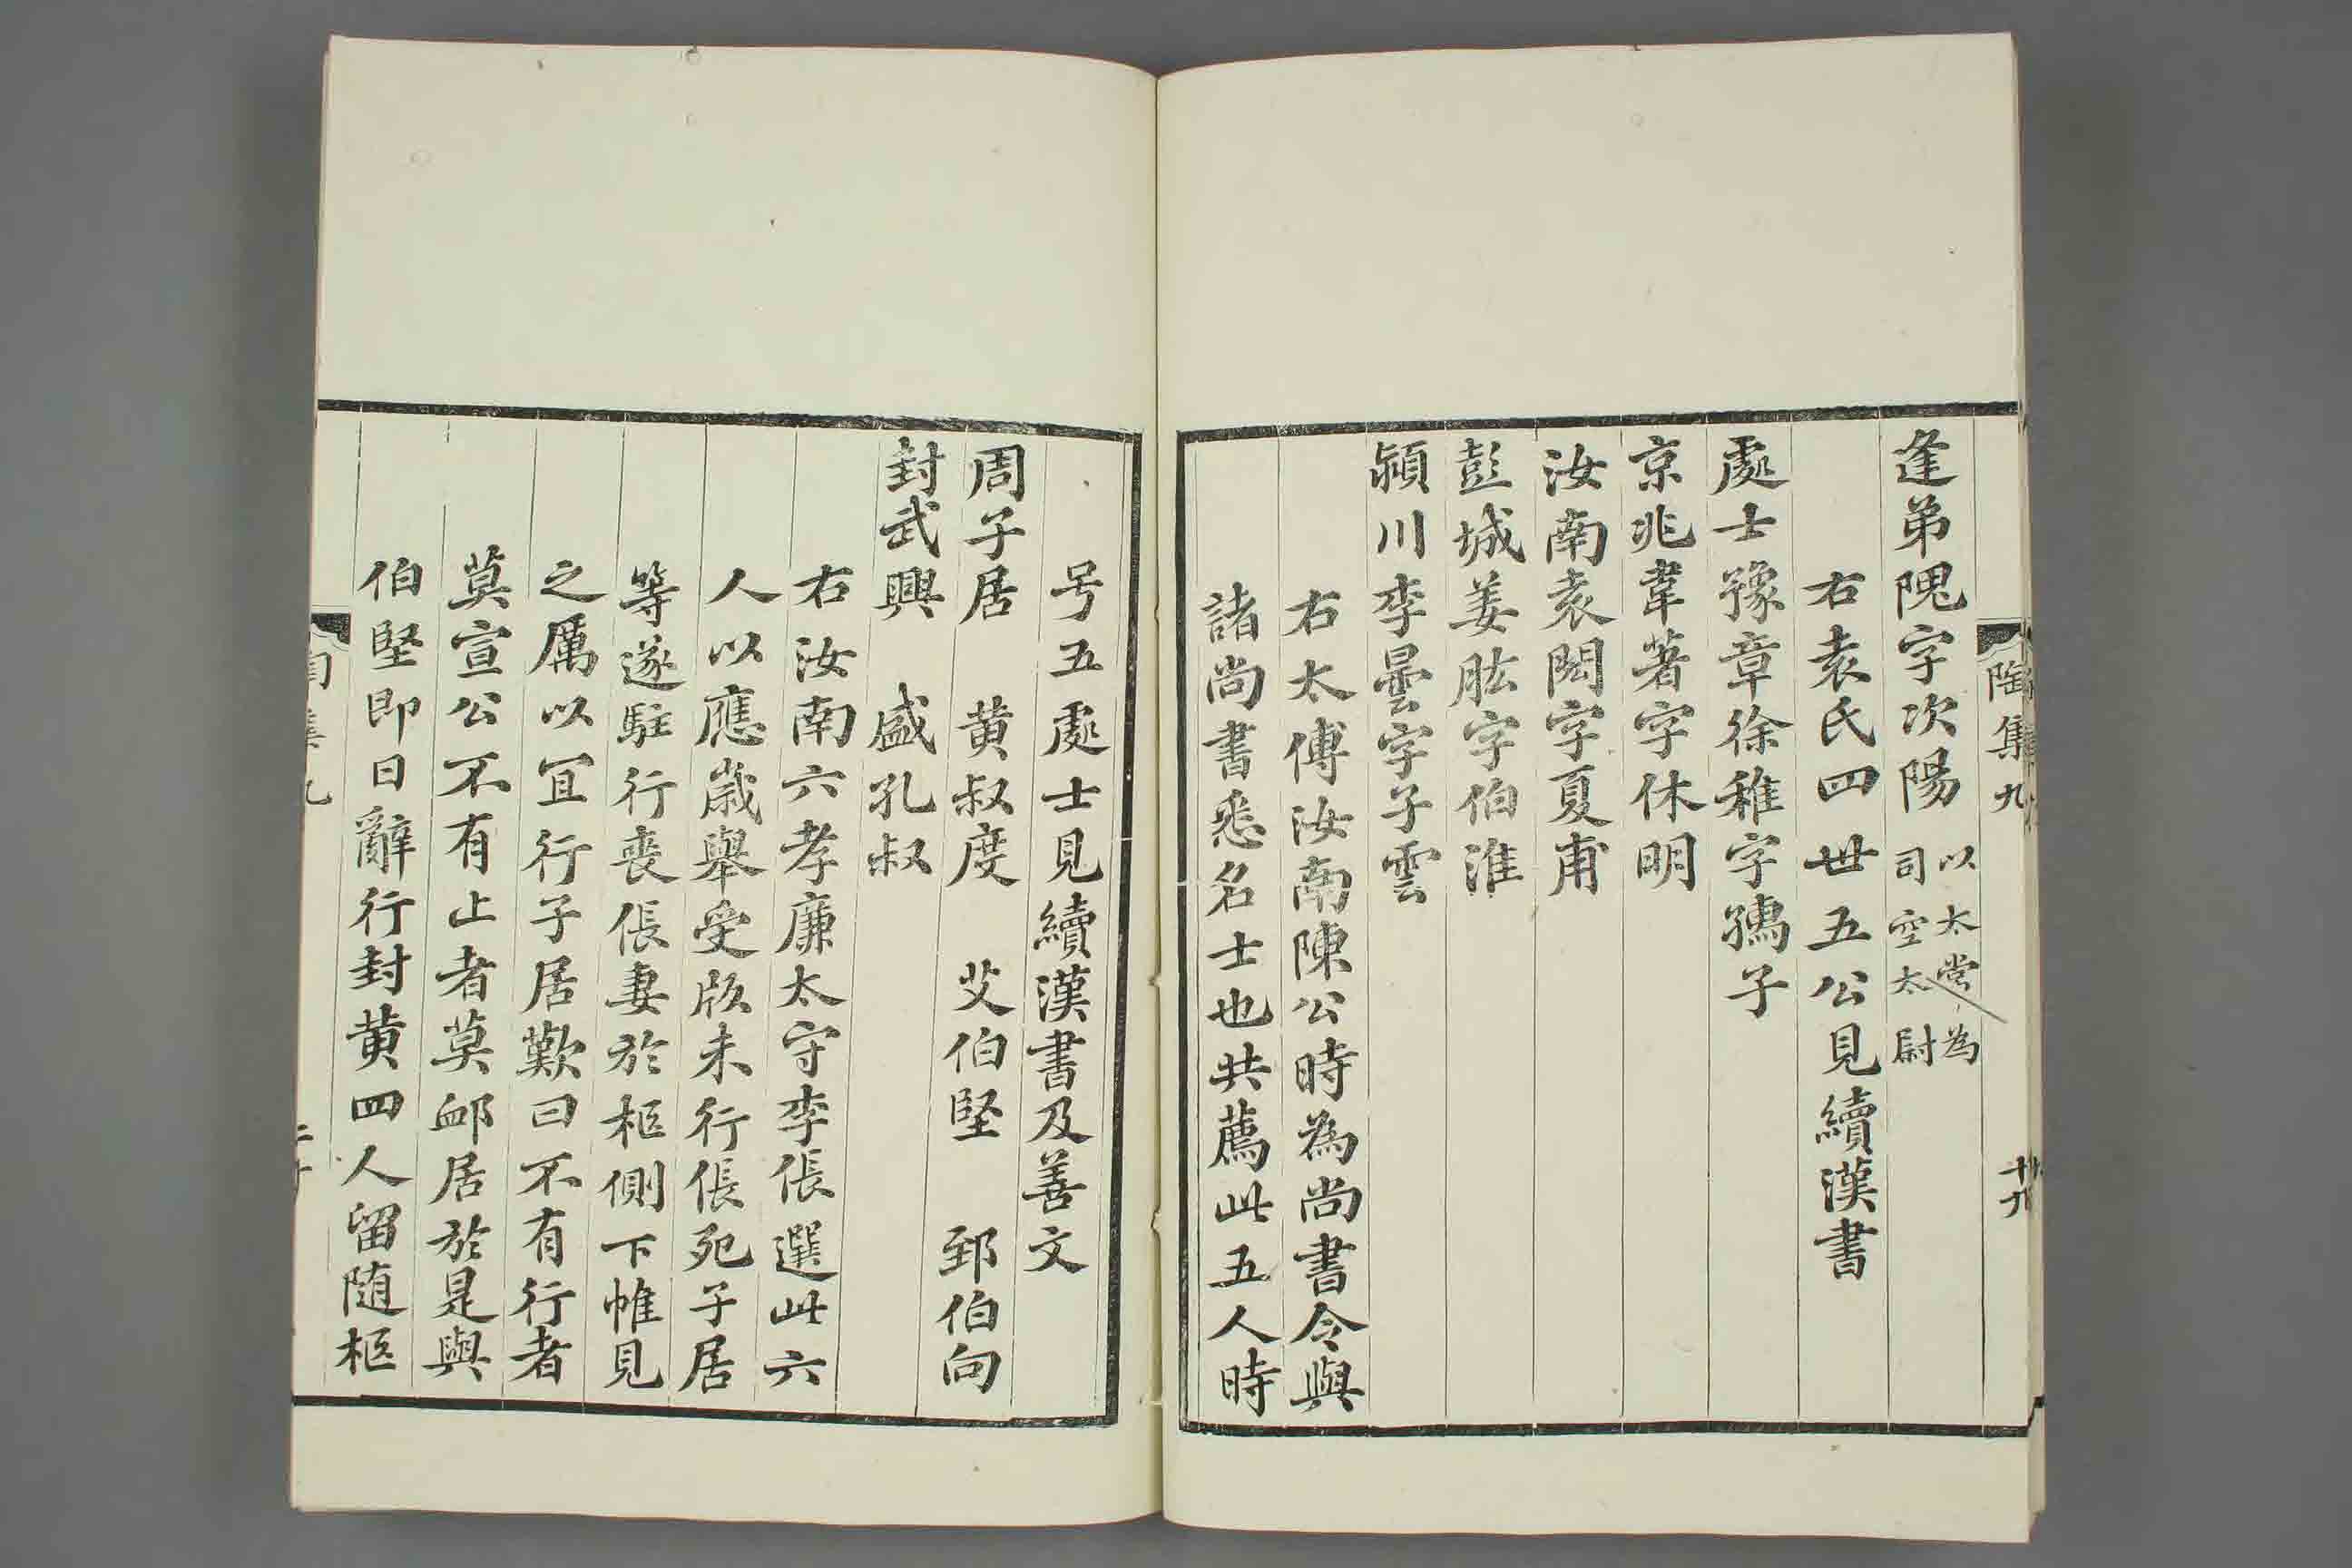 陶集九
十九
逢弟隗字次陽
以太常為
司空太尉
右袁氏四世五公見續漢書
處士豫章徐稚字孺子
京兆韋著字休明
汝南袁閎字夏甫
彭城姜肱字伯淮
潁川李曇字子雲
右太傅汝南陳公時為尚書令與
諸尚書悉名士也共薦此五人時
号五處士見續漢書及善文
周子居　黄叔度　艾伯堅　郅伯向
封武興　盛孔叔
右汝南六孝廉太守李倀選此六
人以應歲舉受版未行倀死子居
等遂駐行喪倀妻於柩側下帷見
之厲以冝行子居歎曰不有行者
莫宣公不有止者莫卹居於是與
伯堅即日辭行封黄四人留随柩